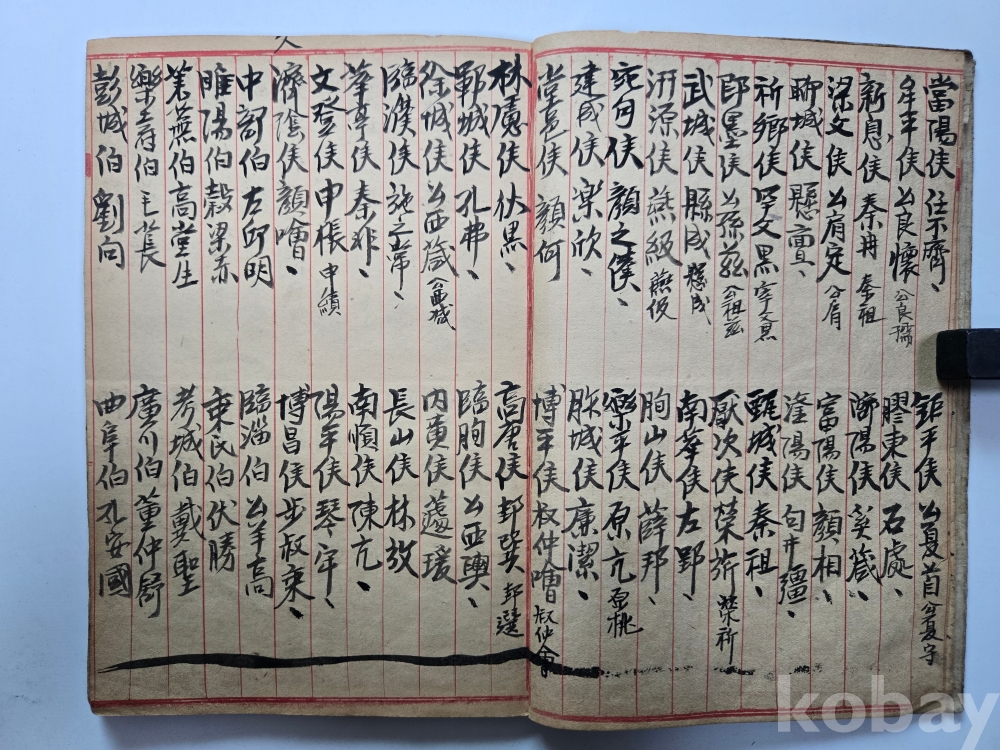 當陽侯 任不齊、 鉅平侯 公夏首 公夏守
牟平侯 公良懷 公良孺 膠東侯 石處、
新息侯 秦冉 秦祖 濟陽侯 奚蒧、
梁父侯 公肩定 公肩 富陽侯 顏相、
聊城侯 懸亶、 滏陽侯 句井疆、
祈鄉侯 罕父黑 宰父黑 甄城侯 秦祖、
即墨侯 公孫茲 公祖茲 厭次侯 榮旂 榮祈
武城侯 縣成 懸成 南華侯 左郢、
汧源侯 燕級 燕伋 朐山侯 薛邦、
宛句侯 顏之僕、 樂平侯 原亢 原桃
建成侯 樂欣、 胙城侯 廉潔、
堂邑侯 顏何 博平侯 叔仲噲 叔仲會
林慮侯 狄黑、 高唐侯 邽巽 邽選
鄆城侯 孔弗、 臨朐侯 公西輿、
徐城侯 公西箴 公西蒧 內黃侯 蘧瑗
臨濮侯 施之常、 長山侯 林放
華亭侯 秦非、 南頓侯 陳亢、
文登侯 申棖 申績 陽平侯 琴牢、
濟陰侯 顏噲、 博昌侯 步叔乘、
中都伯 左邱明 臨淄伯 公羊高
睢陽伯 穀梁赤 乘氏伯 伏勝
萊蕪伯 高堂生 考城伯 戴聖
樂壽伯 毛萇 廣川伯 董仲舒
彭城伯 劉向 曲阜伯 孔安國
kobay